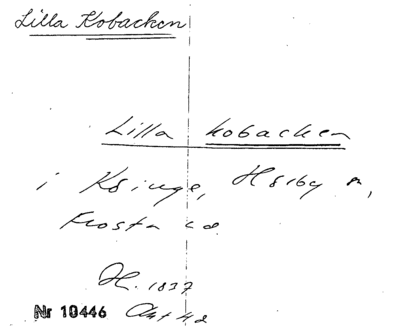 Lilla Kobacken
Lilla kobacken
i Ksinge, Hsiby m,
Frosta
H. 1837
Nr 10446